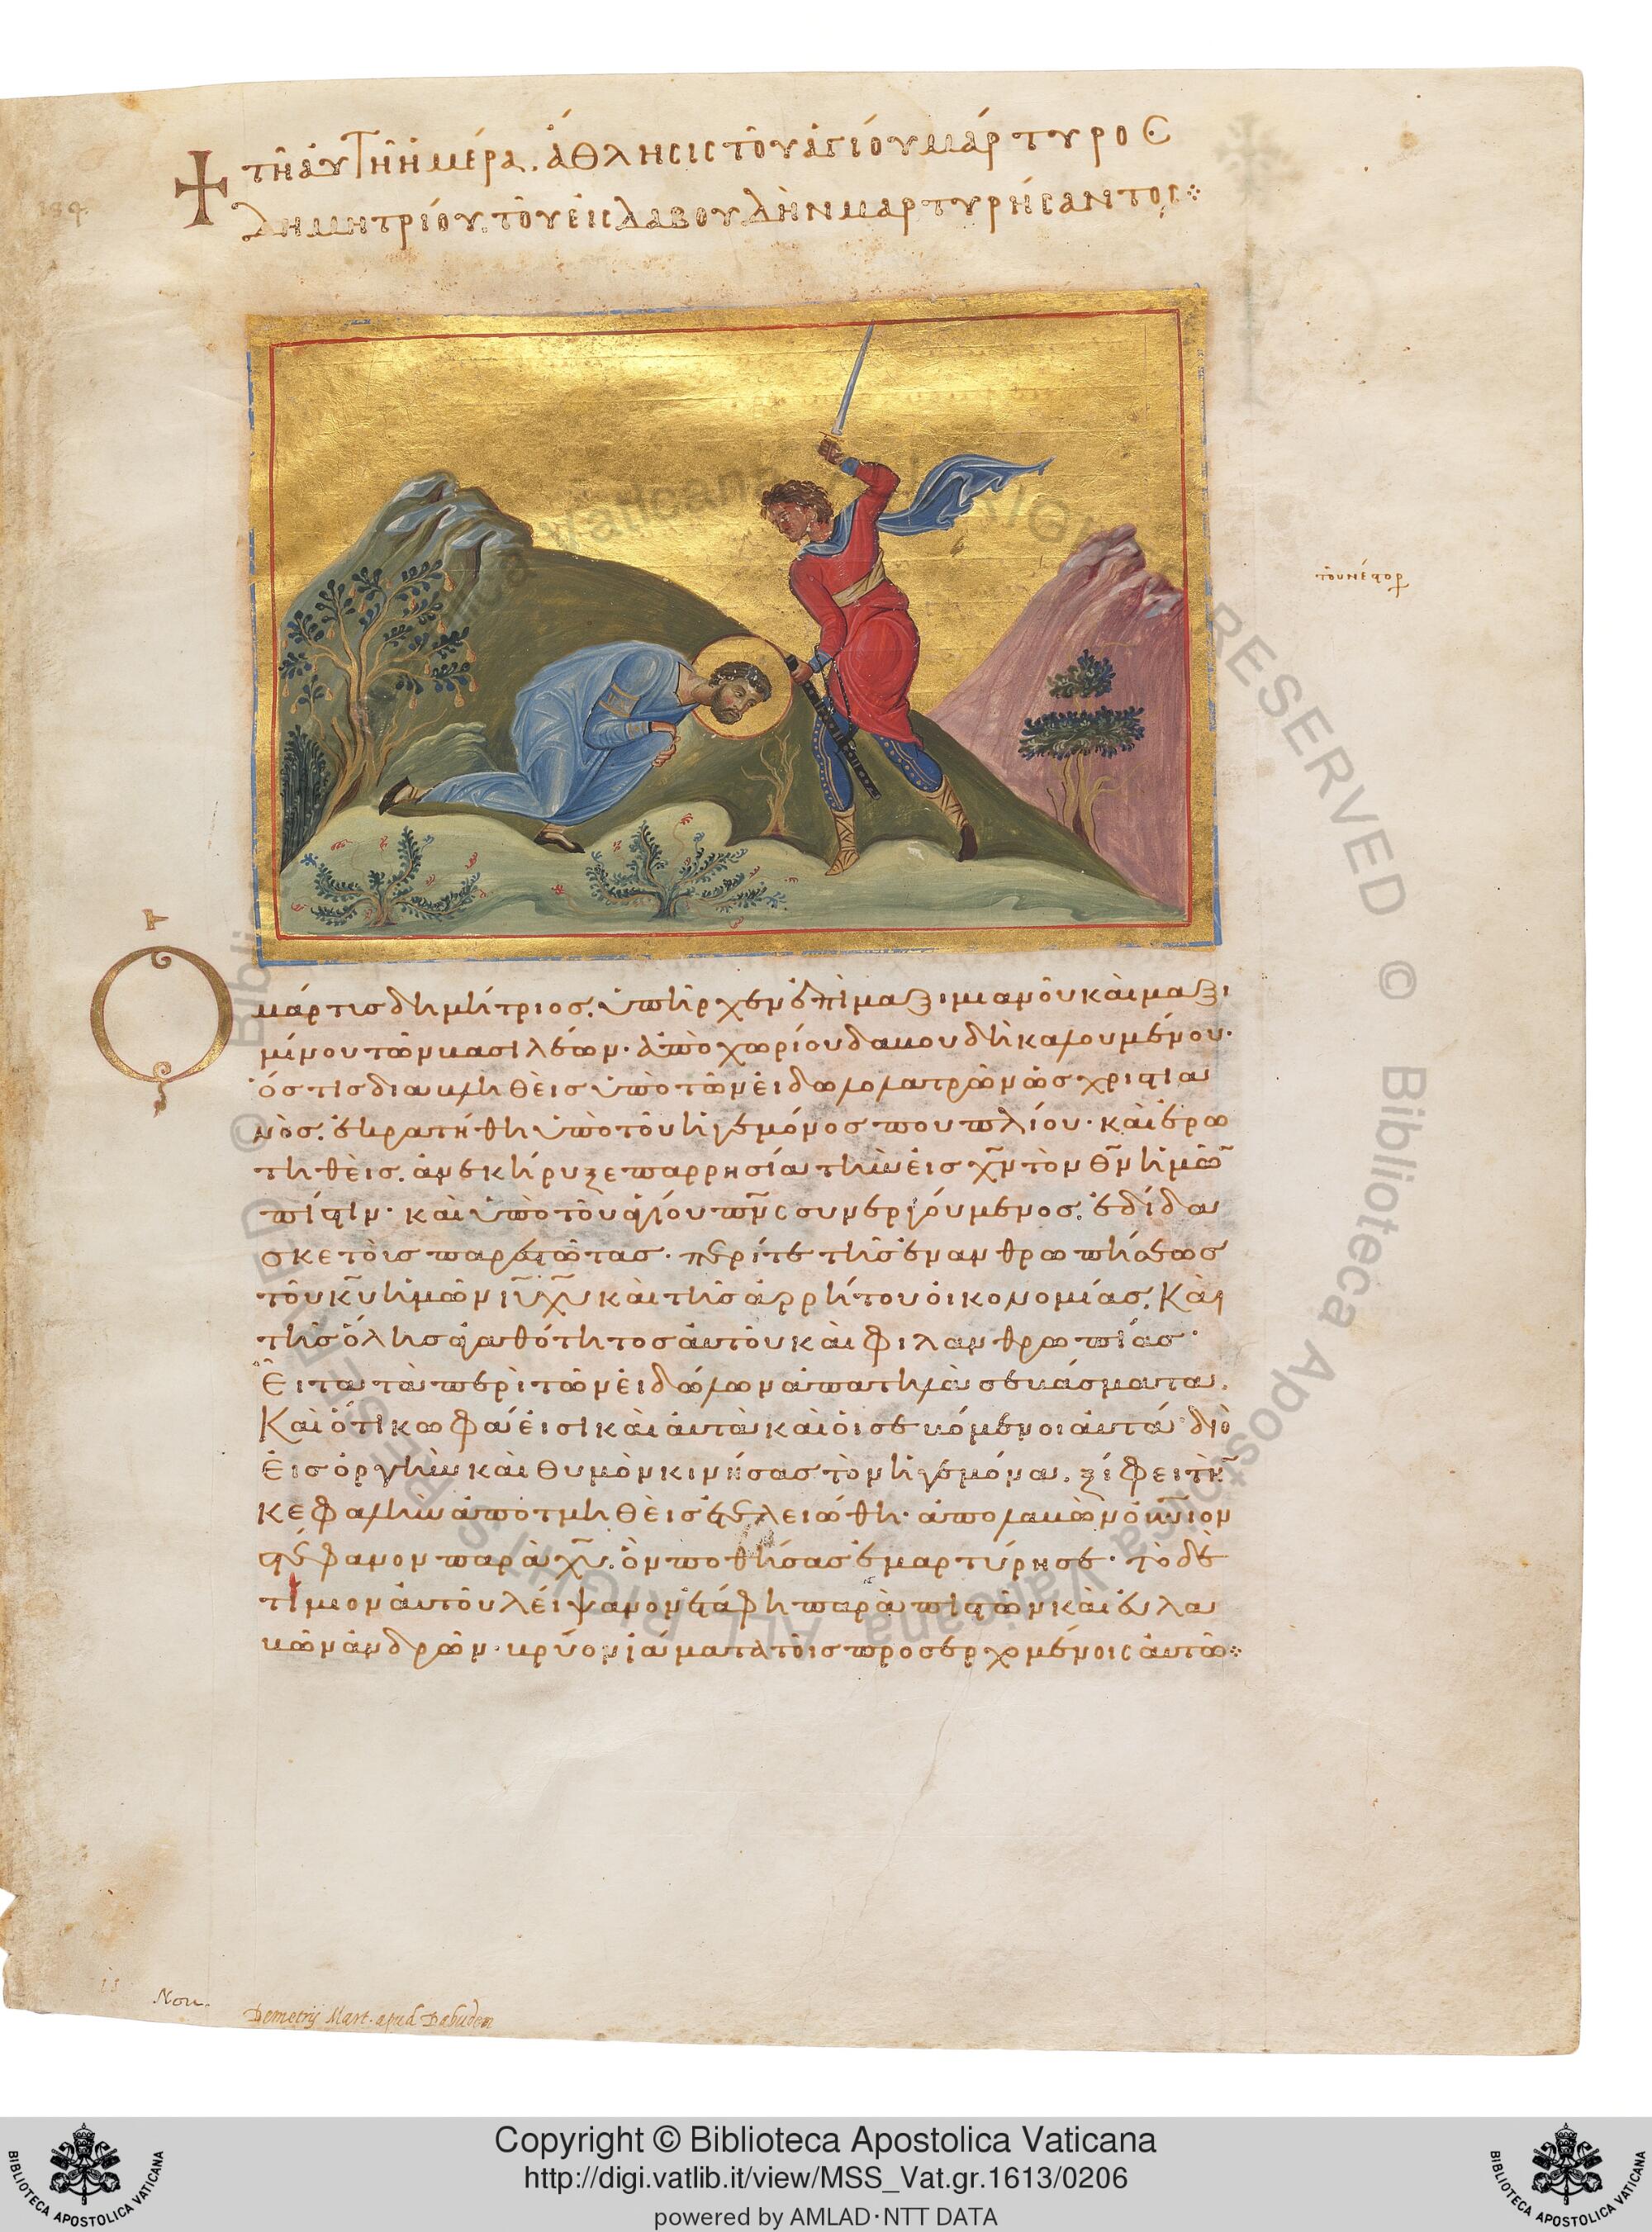 184
τῇ αὐτῇ ἡμέρᾳ. ἄθλησις τοῦ ἁγίου μάρτυρος
Δημητρίου. τοῦ εἰς Δαβουδὴν μαρτυρήσαντος
τοῦ νέστορ
Ὁ
μάρτις δημήτριος, ὑπῆρχεν ἐπὶ μαξιμιανοῦ καὶ μαξι
μίνου τῶν βασιλέων· ἀπὸ χωρίου δαβουδὴ καλουμένου·
ὅστις διαβληθεὶς ὑπὸ τῶν εἰδωλολατρῶν ὡς χριστια
νὸς, ἐκρατήθη ὑπὸ τοῦ ἡγεμόνος πουπλίου· καὶ ἐρω
τηθεὶς, ἀνεκήρυξε παρρησίᾳ τὴν εἰς χν τὸν θν ἡμῶ
πίστιν· καὶ ὑπὸ τοῦ ἁγίου πνς συνεργούμενος, ἐδίδα
σκε τοῖς παρεστῶτας· περί τε τῆς ἐνανθρωπήσεως
τοῦ κυ ἡμῶν ιυ χυ καὶ τῆς ἀρρήτου οἰκονομίας, Καὶ
τῆς ὅλης ἀγαθότητος αὐτοῦ καὶ φιλανθρωπίας·
Εἶτα τὰ περὶ τῶν εἰδώλων ἀπατηλὰ σεβάσματα,
Καὶ ὅτι κωφά εἰσι καὶ αὐτὰ καὶ οἱ σεβόμενοι αὐτά· διὸ
Εἰς ὀργὴν καὶ θυμὸν κινήσας τὸν ἡγεμόνα, ξίφει τὴ
κεφαλὴν ἀποτμηθεὶς ἐτελειώθη· ἀπολαβὼν οὐνιον
στέφανον παρὰ χυ, ὃν ποθήσας ἐμαρτύρησε· τὸ δὲ
τίμιον αὐτοῦ λείψανον ἐτάφη παρὰ πιστῶν καὶ εὐλα
βῶν ἀνδρῶν· βρύον ἰάματα τοῖς προσερχομένοις αὐτῷ
Nou.
Demetrij Mart. apud Dabudem
© Biblioteca Apostolica Vaticana ALL RIGHTS RESERVED
Copyright © Biblioteca Apostolica Vaticana
http://digi.vatlib.it/view/MSS_Vat.gr.1613/0206
powered by AMLAD·NTT DATA
BIBLIOTECA APOSTOLICA VATICANA
BIBLIOTECA APOSTOLICA VATICANA